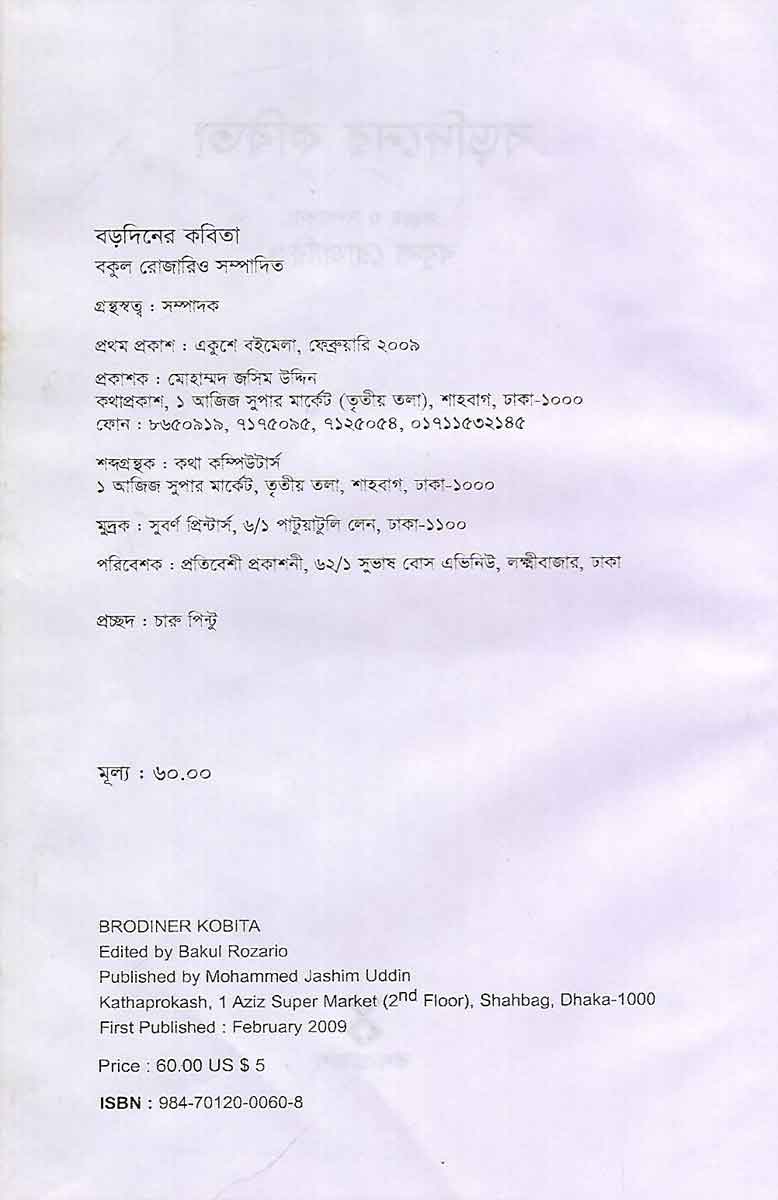 বড়দিনের কবিতা
বকুল রোজারিও সম্পাদিত
গ্রন্থস্বত্ব : সম্পাদক
প্রথম প্রকাশ : একুশে বইমেলা, ফেব্রুয়ারি ২০০৯
প্রকাশক : মোহাম্মদ জসিম উদ্দিন
কথাপ্রকাশ, ১ আজিজ সুপার মার্কেট (তৃতীয় তলা), শাহবাগ, ঢাকা-১০০০
ফোন : ৮৬৫০৯১৯, ৭১৭৫০৯৫, ৭১২৫০৫৪, ০১৭১১৫৩২১৪৫
শব্দগ্রন্থক : কথা কম্পিউটার্স
১ আজিজ সুপার মার্কেট, তৃতীয় তলা, শাহবাগ, ঢাকা-১০০০
মুদ্রক : সুবর্ণ প্রিন্টার্স, ৬/১ পাটুয়াটুলি লেন, ঢাকা-১১০০
পরিবেশক : প্রতিবেশী প্রকাশনী, ৬২/১ সুভাষ বোস এভিনিউ, লক্ষ্মীবাজার, ঢাকা
প্রচ্ছদ : চারু পিন্টু
মূল্য : ৬০.০০
BRODINER KOBITA
Edited by Bakul Rozario
Published by Mohammed Jashim Uddin
Kathaprokash, 1 Aziz Super Market (2nd Floor), Shahbag, Dhaka-1000
First Published : February 2009
Price : 60.00 US $ 5
ISBN : 984-70120-0060-8